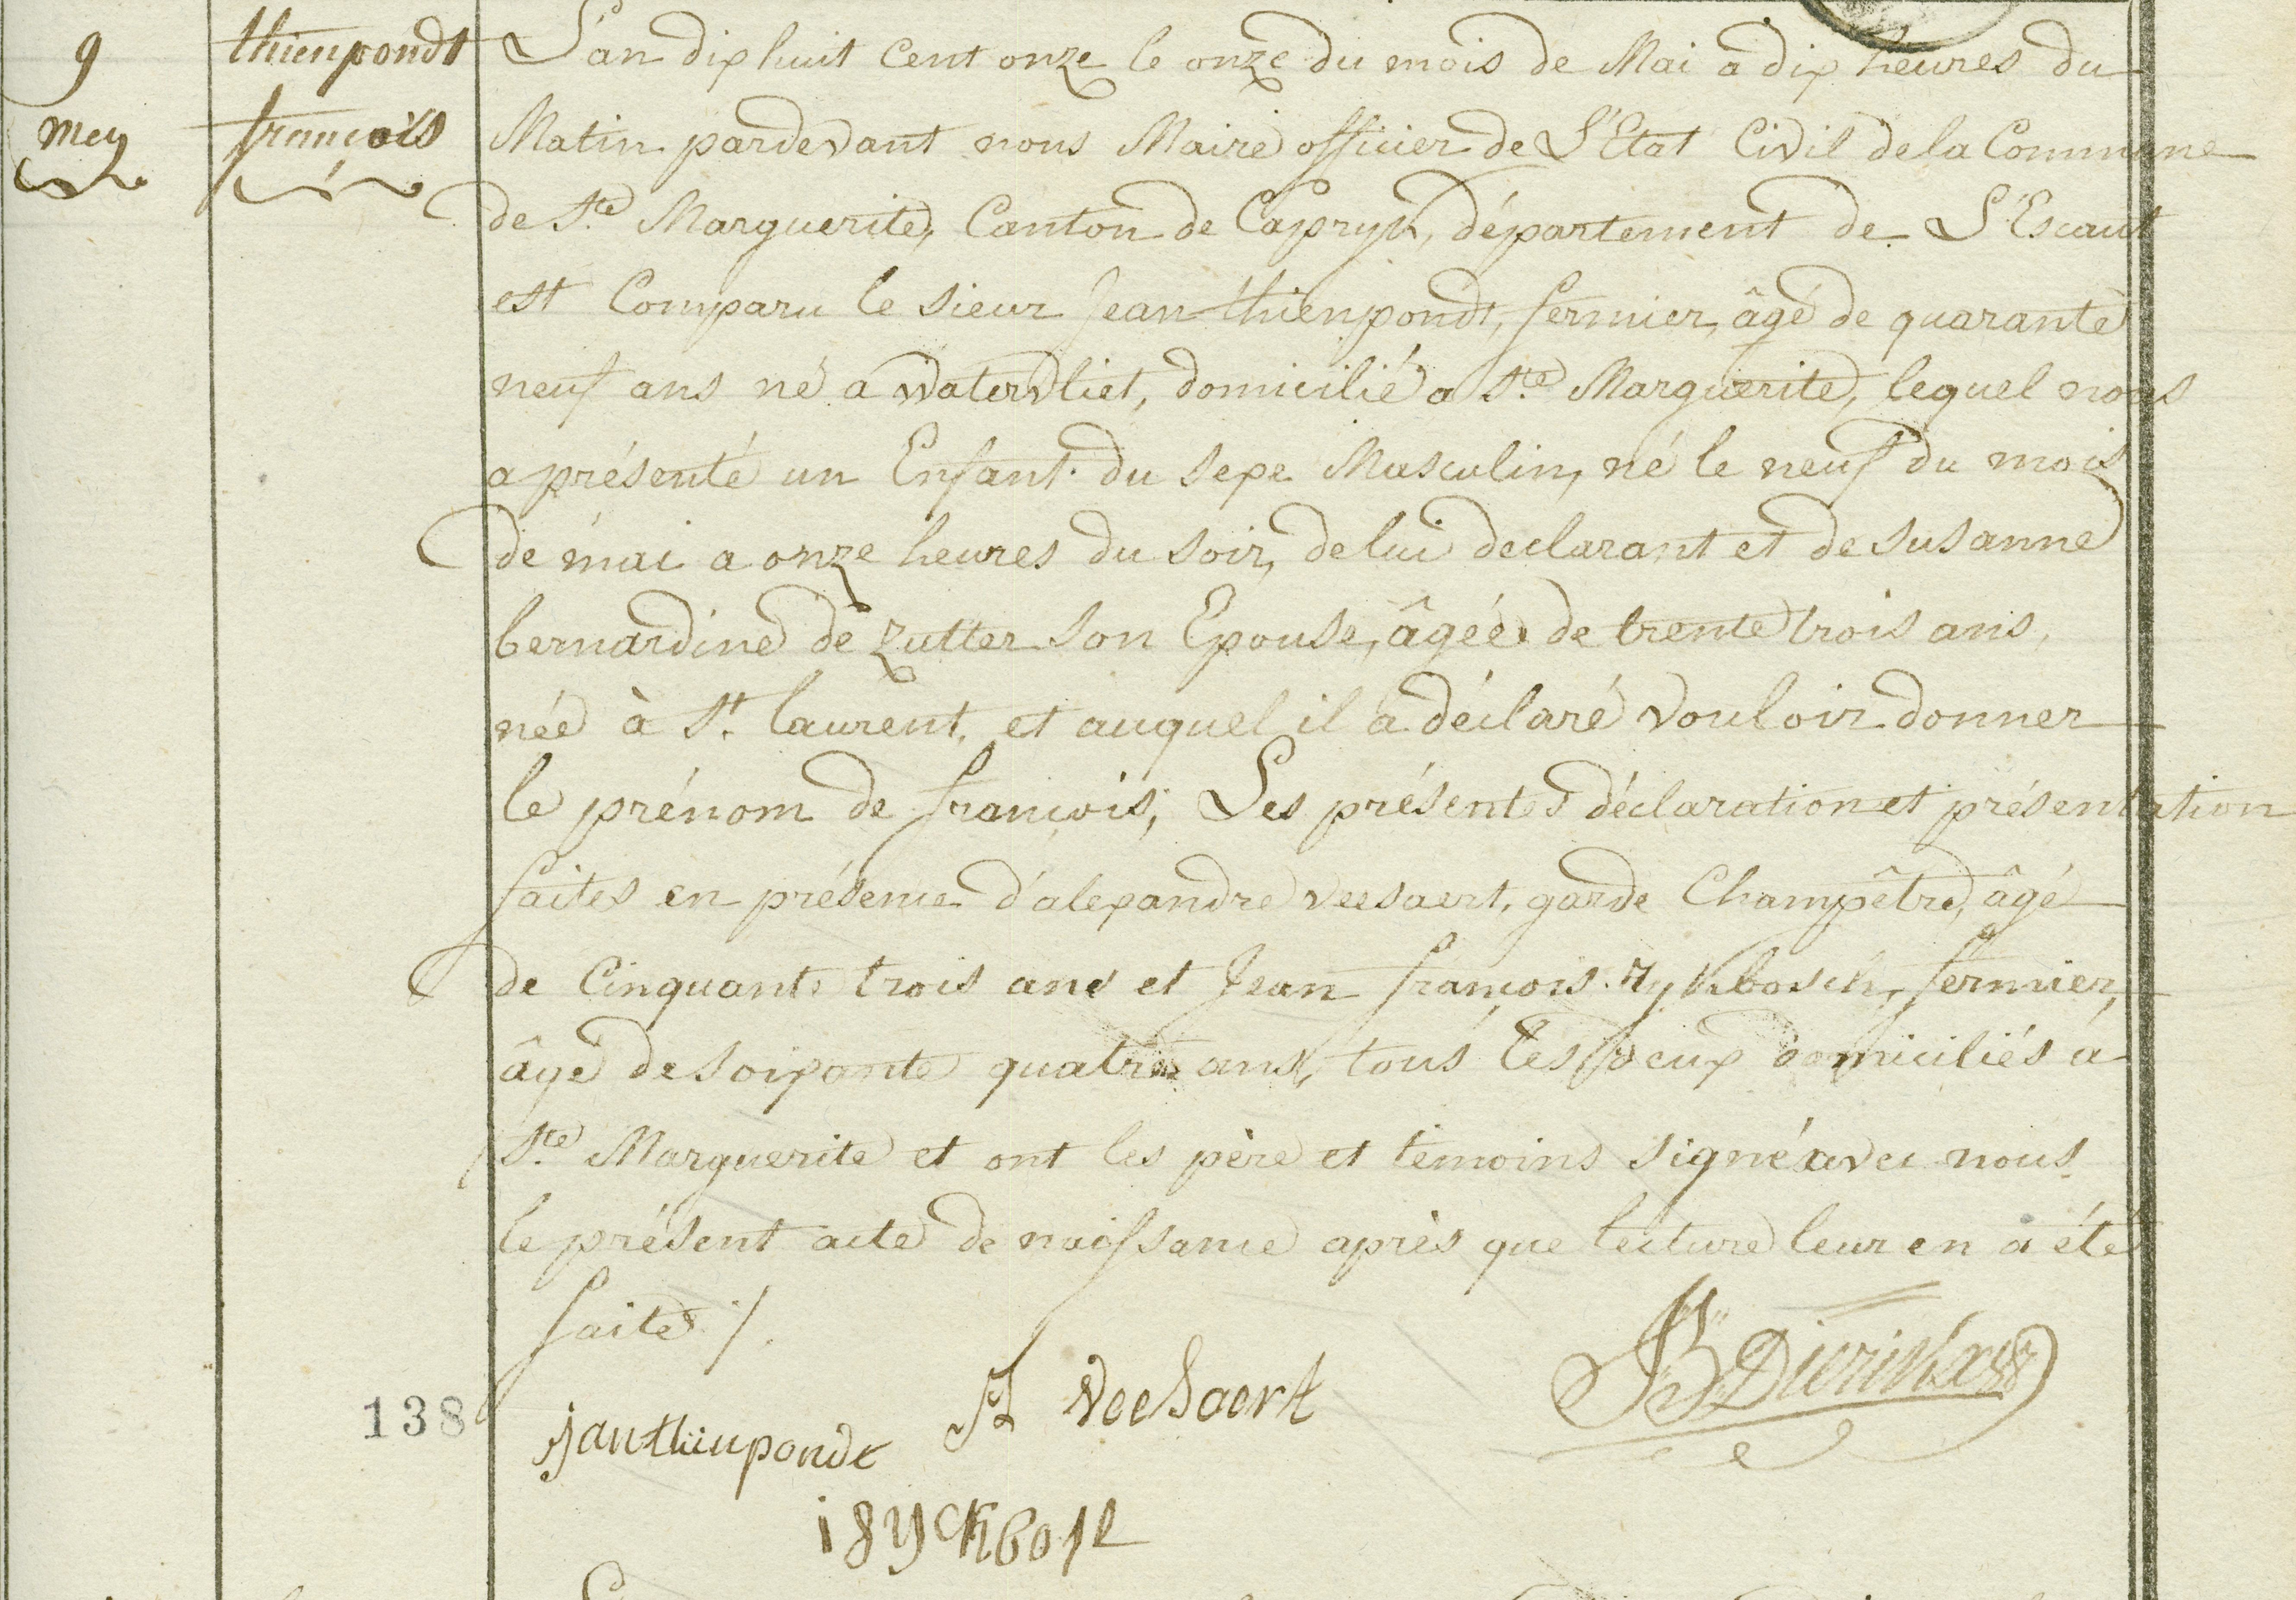 9
mey
thienpondt
françois
L'an dix huit Cent onze le onze du mois de Mai a dix heures du
Matin pardevant nous Maire officier de L'Etat Civil de la Commune
de Ste Marguerite, Canton de Capryk, département de L'Escaut
est Comparu le sieur Jean thienpondt, fermier, âgé de quarante
neuf ans né a Watervliet, domicilié a Ste Marguerite, lequel nous
a présenté un Enfant du sexe Masculin, né le neuf du mois
de mai a onze heures du soir, de lui declarant et de susanne
bernardine de Zutter son Epouse, âgée de trente trois ans,
née à St. laurent, et auquel il a déclaré vouloir donner
le prénom de françois; Les présentes déclaration et présentation
faites en présence d'alexandre veesaert, garde Champêtre, âgé
de Cinquante trois ans et Jean françois rykbosch, fermier,
âgé de soixante quatre ans, tous les deux domiciliés a
Ste Marguerite et ont les père et temoins signé avec nous
le présent acte de naissance après que lecture leur en a été
faite ./.
138
jan thienpondt
A veesaert
JB Dierickx